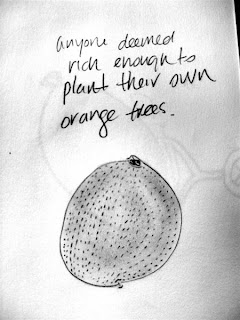 anyone deemed
rich enough to
plant their own
orange trees.